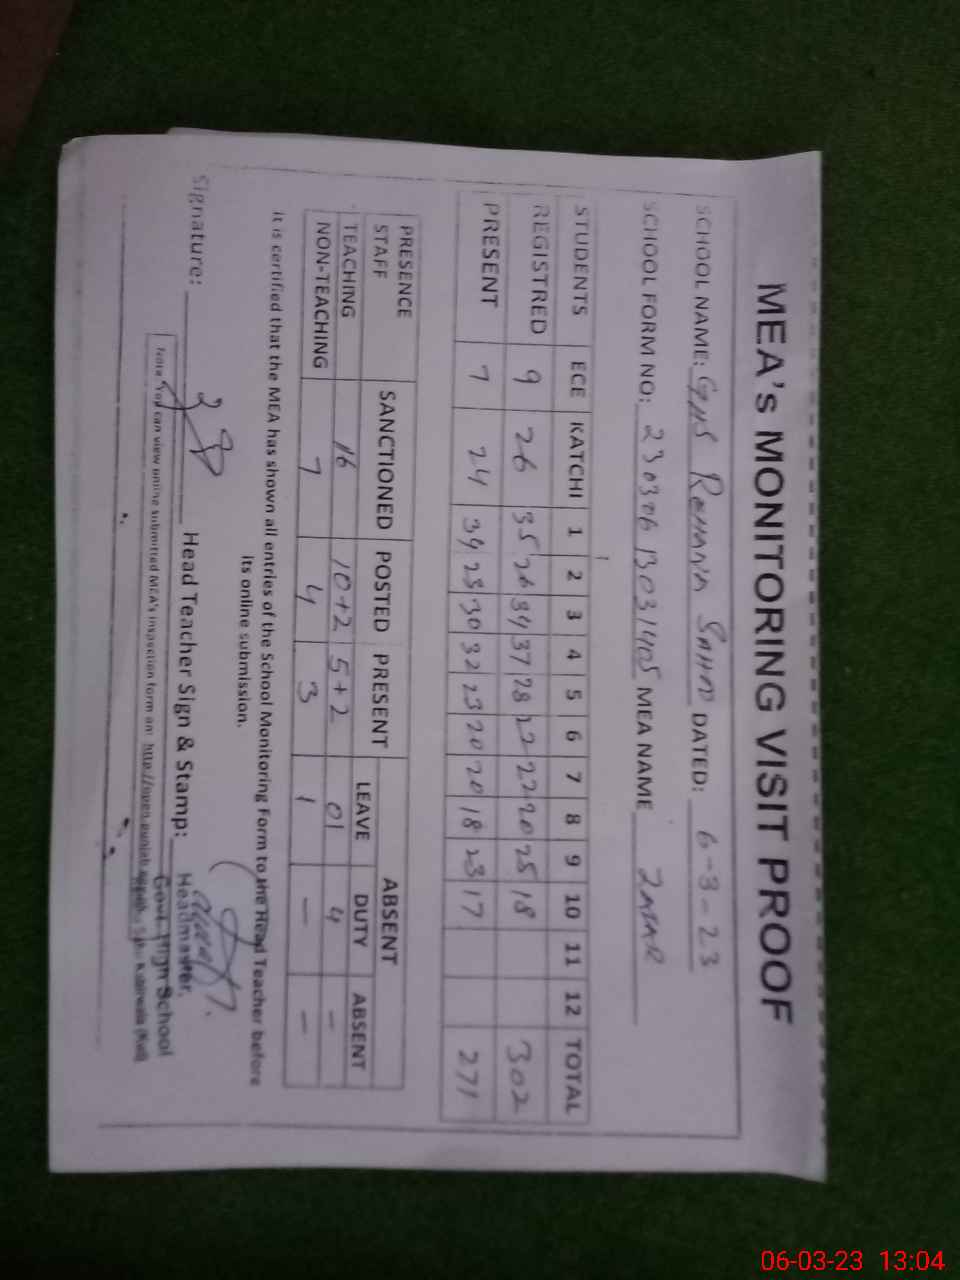 MEA's MONITORING VISIT PROOF
SCHOOL NAME: GHS ROHANA SAHU DATED: 6-3-23
SCHOOL FORM NO: 23030613031405 MEA NAME ZAFAR
STUDENTS ECE KATCHI 1 2 3 4 5 6 7 8 9 10 11 12 TOTAL
REGISTRED 9 26 35 26 34 37 28 22 22 20 25 18 302
PRESENT 7 24 34 23 30 32 23 20 20 18 23 17 271
PRESENCE STAFF SANCTIONED POSTED PRESENT ABSENT
LEAVE DUTY ABSENT
TEACHING 16 10+2 5+2 01 4 -
NON-TEACHING 7 4 3 1 - -
It is certified that the MEA has shown all entries of the School Monitoring Form to the Head Teacher before
its online submission.
Signature: Head Teacher Sign & Stamp:
Headmaster,
Govt. High School
Note: You can view online submitted MEA's inspection form on: http://open.punjab.gov.pk
06-03-23 13:04